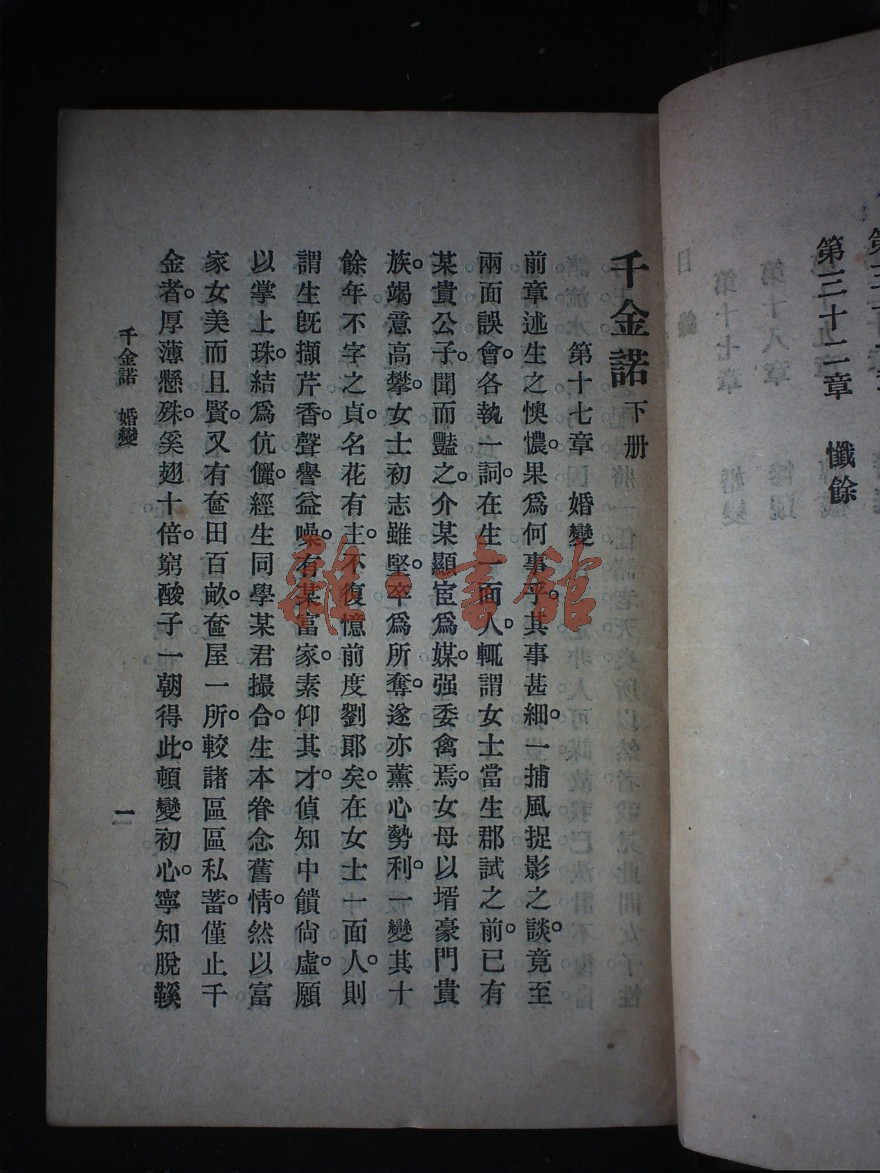 第三十二章　懺餘
千金諾　下册
第十七章　婚變
前章述生之懊憹。果爲何事乎。其事甚細。一捕風捉影之談。竟至
兩面誤會。各執一詞。在生一面人。輒謂女士當生郡試之前。已有
某貴公子。聞而豔之。介某顯宦爲媒。强委禽焉。女母以壻豪門貴
族。竭意高攀。女士初志雖堅。卒爲所奪。遂亦薰心勢利。一變其十
餘年不字之貞。名花有主。不復憶前度劉郞矣。在女士一面人。則
謂生旣擷芹香。聲譽益噪。有某富家。素仰其才。偵知中饋尙虛。願
以掌上珠。結爲伉儷。經生同學某君撮合。生本眷念舊情。然以富
家女美而且賢。又有奩田百畝。奩屋一所。較諸區區私蓄。僅止千
金者。厚薄懸殊。奚翅十倍。窮酸子一朝得此。頓變初心。寧知脫鞵
千金諾　婚變
一
雜·書館